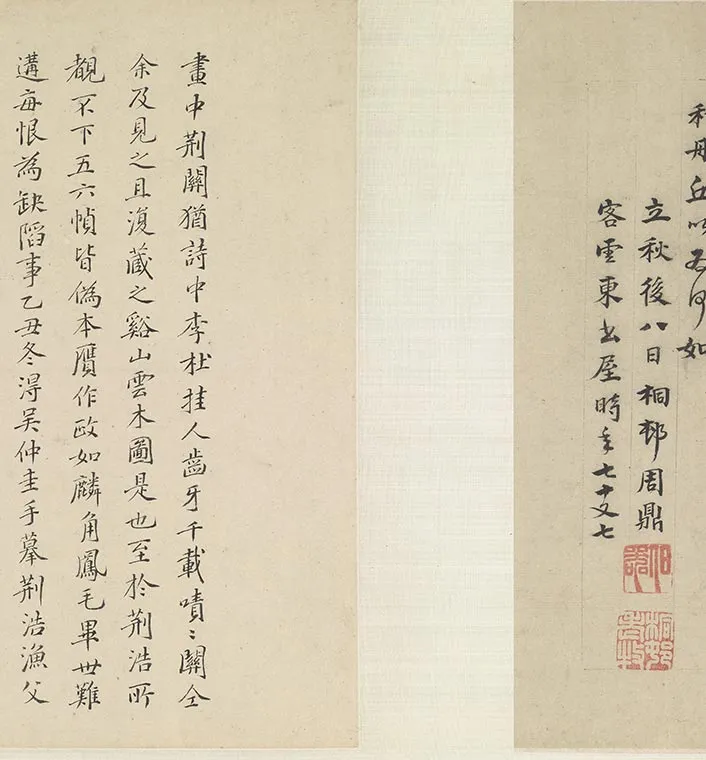 和丹丘以為何如
立秋後八日桐邨周鼎
客雲東書屋時年七十又七
畫中荆關猶詩中李杜挂人齒牙千載嘖〻關仝
余及見之且復藏之谿山雲木圖是也至於荆浩所
覩不下五六幀皆僞本贋作政如麟角鳳毛畢世難
遘每恨為缺陷事乙丑冬得吳仲圭手摹荆浩漁父